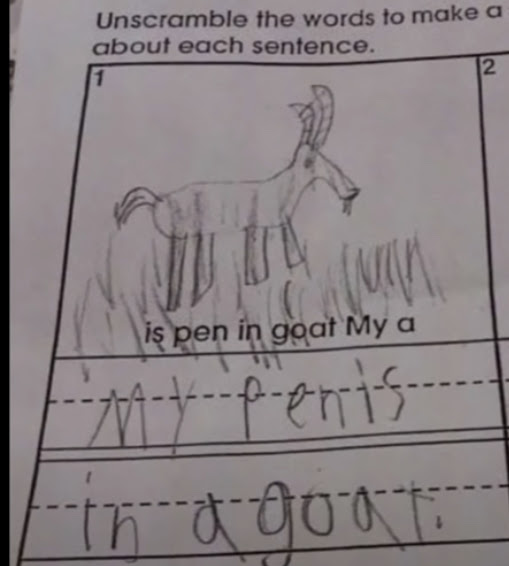 Unscramble the words to make a
about each sentence.
1
2
is pen in goat My a
My penis
in a goat.